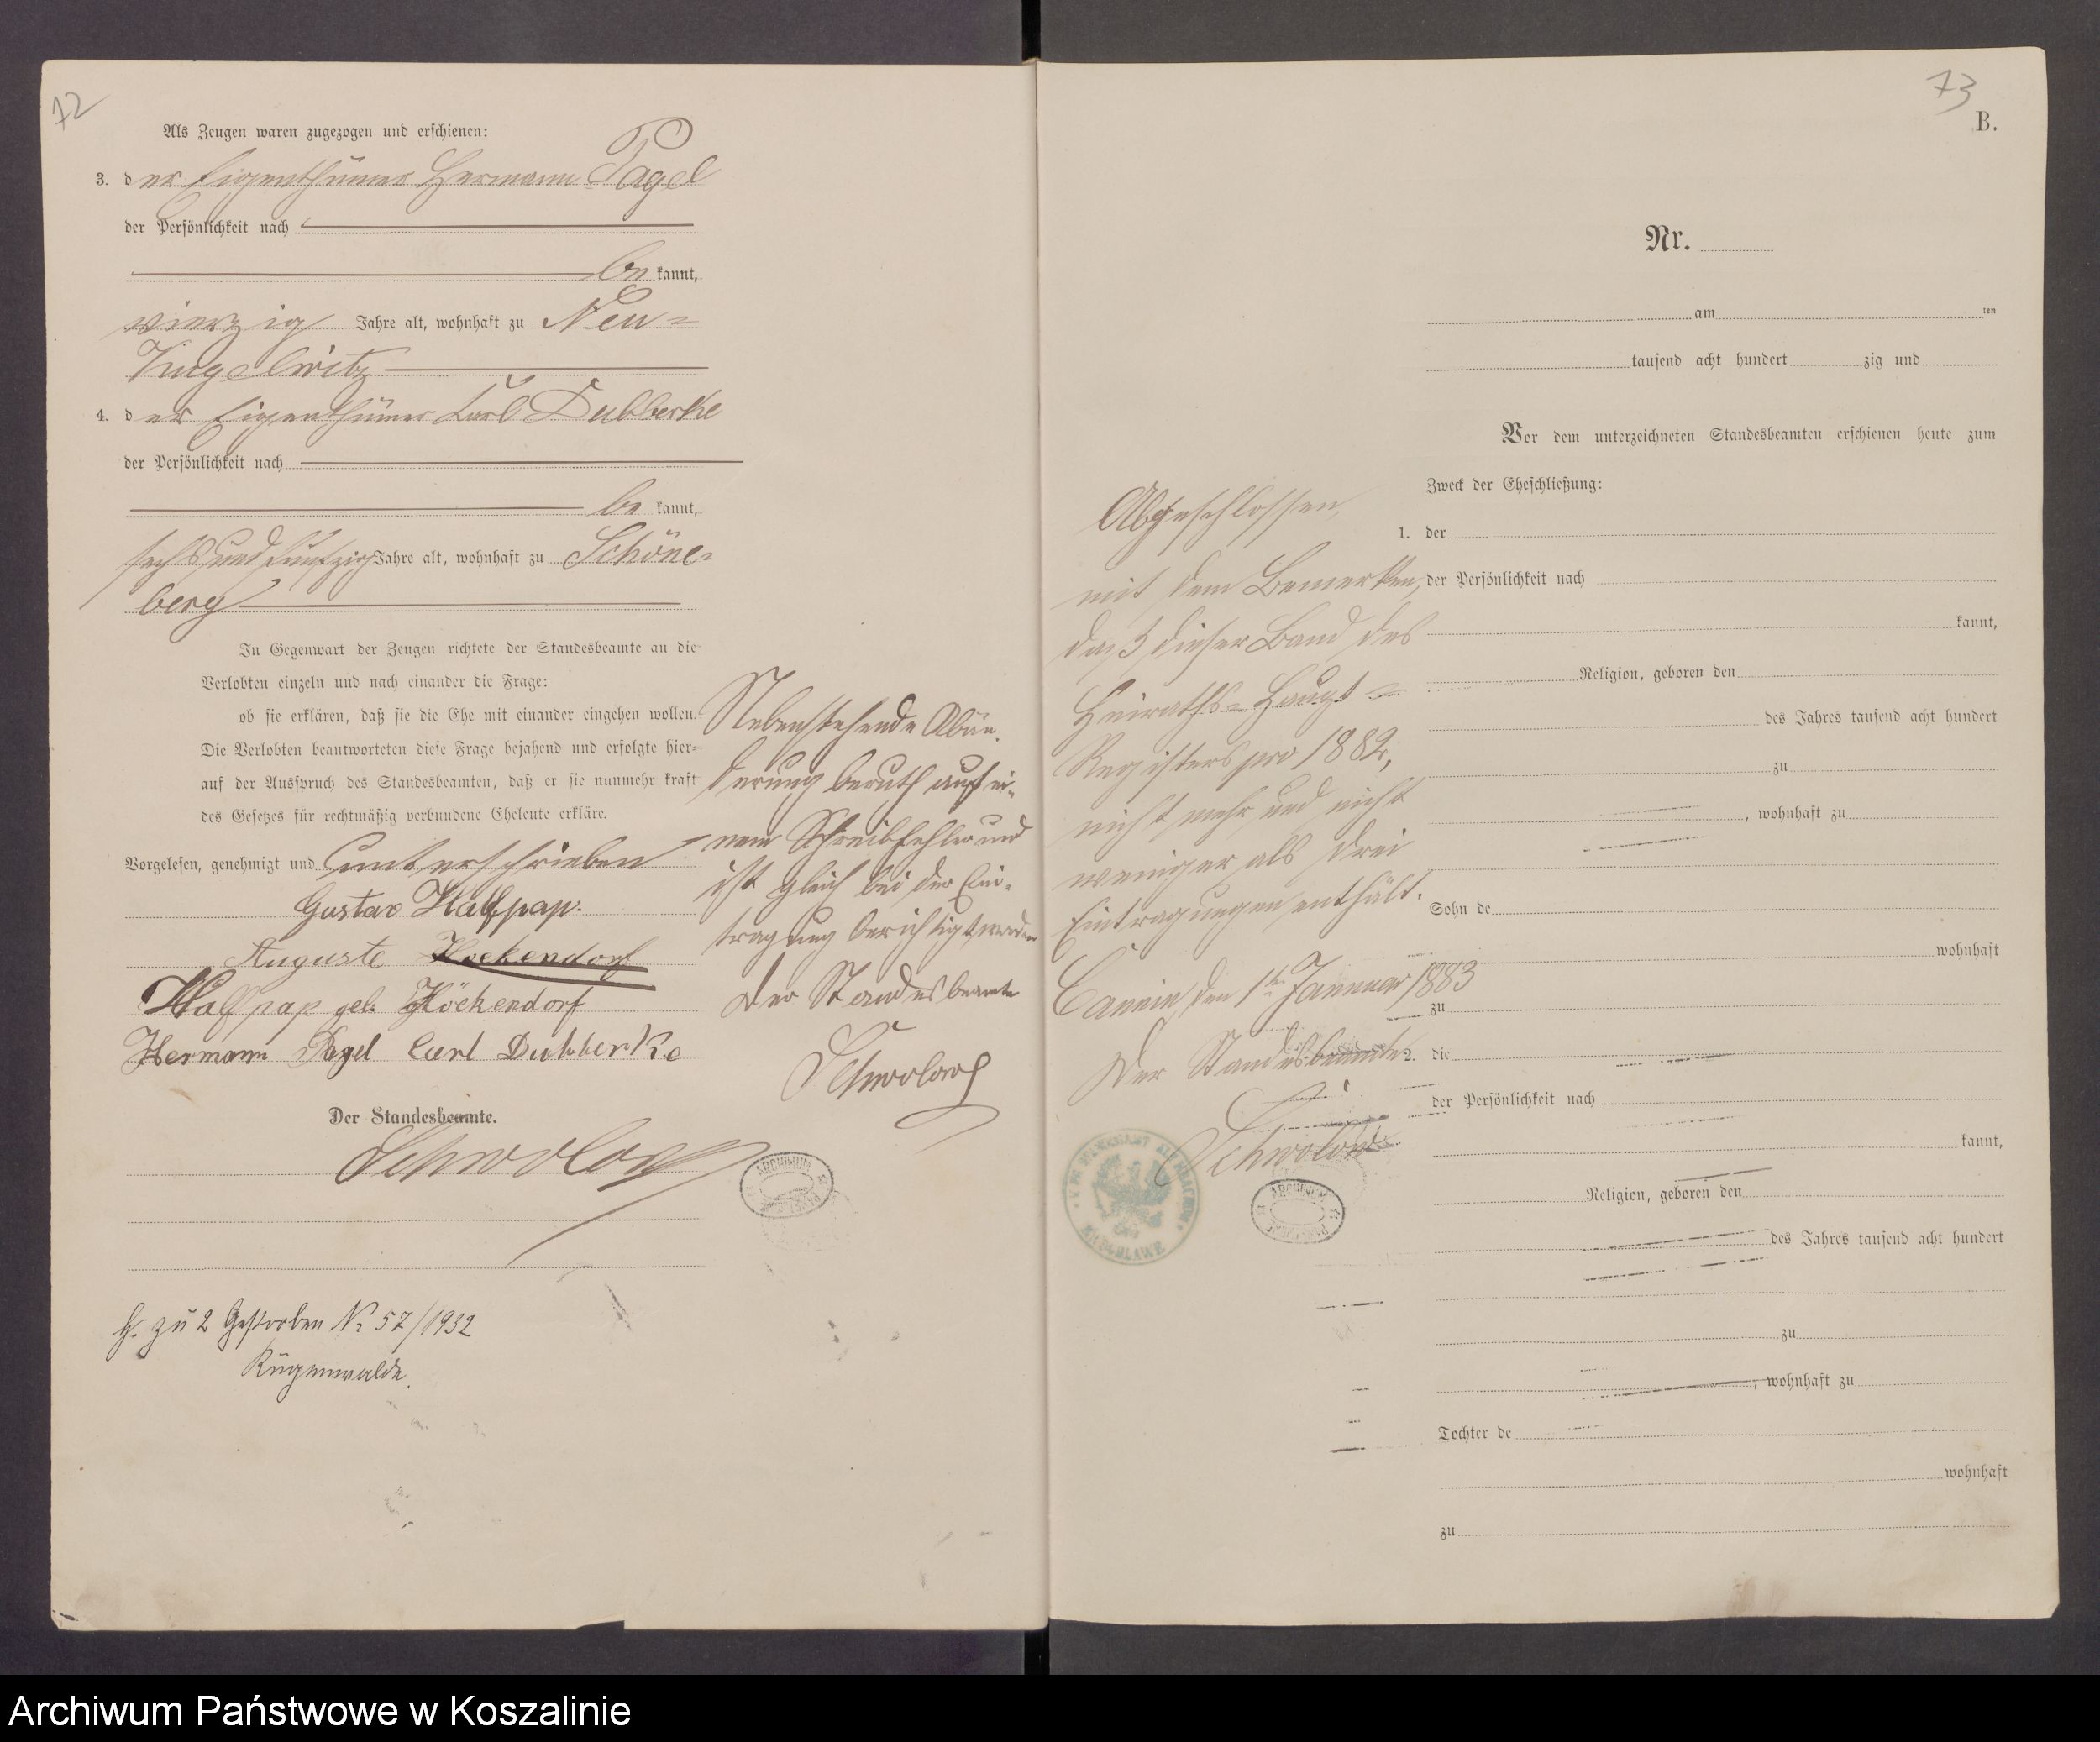 72
Als Zeugen waren zugezogen und erschienen:
3. der Eigenthümer Hermann Pagel
der Persönlichkeit nach
be kannt,
vierzig Jahre alt, wohnhaft zu Neu-
Kugelwitz
4. der Eigenthümer Carl Dubberke
der Persönlichkeit nach
be kannt,
sechsundfünfzig Jahre alt, wohnhaft zu Schöne-
berg
In Gegenwart der Zeugen richtete der Standesbeamte an die
Verlobten einzeln und nach einander die Frage:
ob sie erklären, daß sie die Ehe mit einander eingehen wollen.
Die Verlobten beantworteten diese Frage bejahend und erfolgte hier-
auf der Ausspruch des Standesbeamten, daß er sie nunmehr kraft
des Gesetzes für rechtmäßig verbundene Eheleute erkläre.
Vorgelesen, genehmigt und unterschrieben
Gustav Halfpap.
Auguste Hoekendorf
Halfpap geb. Höckendorf
Hermann Pagel Carl Dubberke
Der Standesbeamte.
Schwolow
Nebenstehende Abän-
derung beruth auf ei-
nem Schreibfehler und
ist gleich bei der Ein-
tragung berichtigt worden
Der Standesbeamte
Schwolow
ARCHIWUM
H. zu 2 Gestorben Nr 57/1932
Rügenwalde.
73
B.
Nr.
am ten
tausend acht hundert zig und
Vor dem unterzeichneten Standesbeamten erschienen heute zum
Zweck der Eheschließung:
1. der
der Persönlichkeit nach
kannt,
Religion, geboren den
des Jahres tausend acht hundert
zu
, wohnhaft zu
Sohn de
wohnhaft
zu
2. die
der Persönlichkeit nach
kannt,
Religion, geboren den
des Jahres tausend acht hundert
zu
, wohnhaft zu
Tochter de
wohnhaft
zu
Abgeschlossen,
mit dem Bemerken,
daß dieser Band des
Heiraths-Haupt-
Registers pro 1882,
nicht mehr und nicht
weniger als drei
Eintragungen enthält.
Cannin, den 1ten Januar 1883
Der Standesbeamte
Schwolow
ARCHIWUM
Archiwum Państwowe w Koszalinie